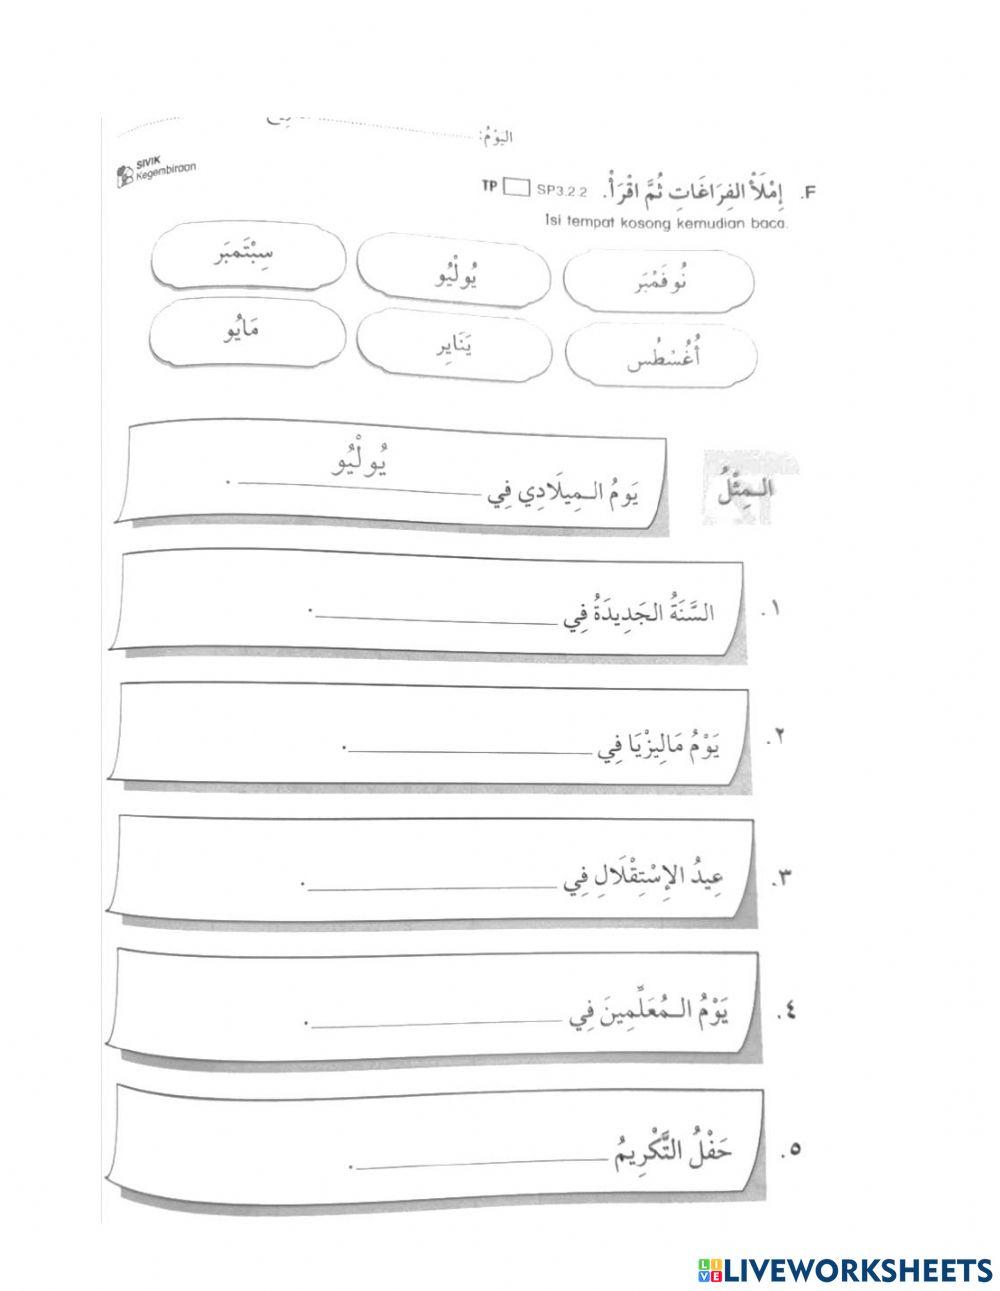 اليَوْمُ:
SIVIK
Kegembiraan
F. إِمْلَأْ الفِرَاغَاتِ ثُمَّ اقْرَأْ. SP3.2.2 TP
Isi tempat kosong kemudian baca.
نُوفَمْبَر يُولْيُو سِبْتَمبَر
أُغُسْطُس يَنَايِر مَايُو
المِثْلُ
يَومُ الـمِيلَادِي فِي يُولْيُو .
١. السَّنَةُ الجَدِيدَةُ فِي ____________.
٢. يَوْمُ مَالِيزْيَا فِي ____________.
٣. عِيدُ الإِسْتِقْلَالِ فِي ____________.
٤. يَوْمُ الـمُعَلِّمِينَ فِي ____________.
٥. حَفْلُ التَّكْرِيمُ ____________.
LIVEWORKSHEETS